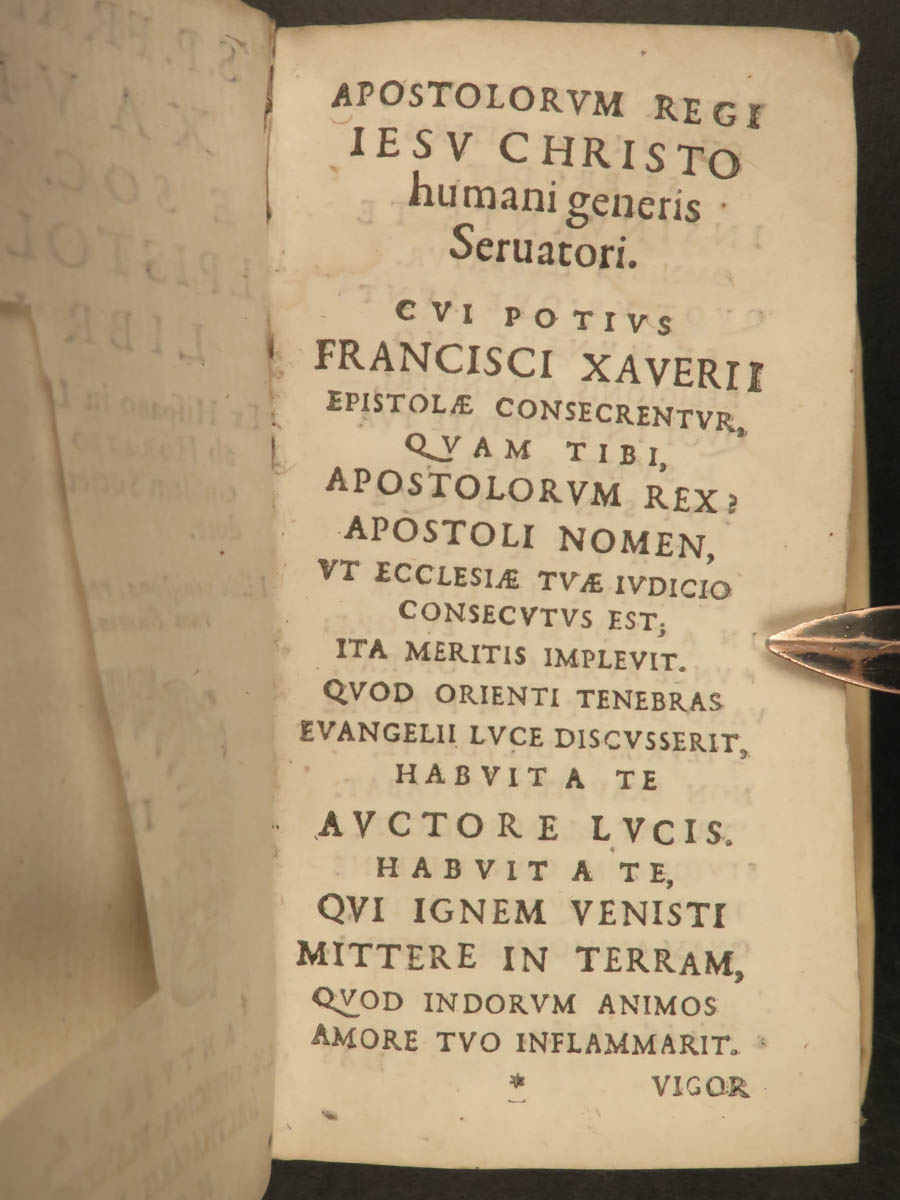 APOSTOLORVM REGI
IESV CHRISTO
humani generis
Seruatori.
CVI POTIVS
FRANCISCI XAVERII
EPISTOLÆ CONSECRENTVR,
QVAM TIBI,
APOSTOLORVM REX?
APOSTOLI NOMEN,
VT ECCLESIÆ TVÆ IVDICIO
CONSECVTVS EST;
ITA MERITIS IMPLEVIT.
QVOD ORIENTI TENEBRAS
EVANGELII LVCE DISCVSSERIT,
HABVIT A TE
AVCTORE LVCIS.
HABVIT A TE,
QVI IGNEM VENISTI
MITTERE IN TERRAM,
QVOD INDORVM ANIMOS
AMORE TVO INFLAMMARIT.
* VIGOR